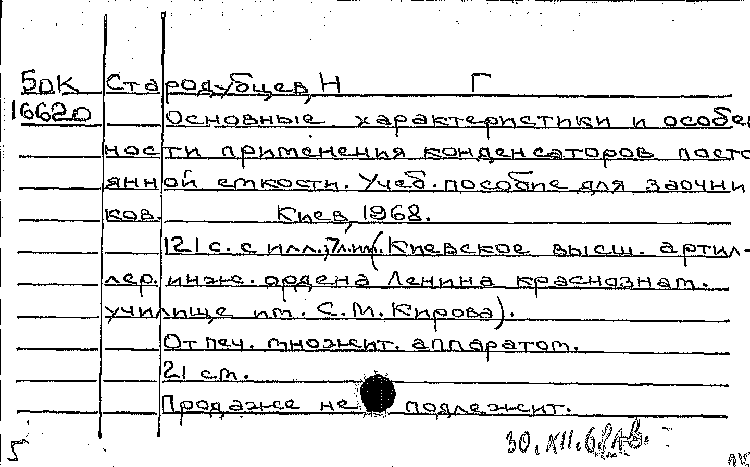 БДК Стародубцев, Н Г
16620 Основные характеристики и особен
ности применения конденсаторов посто
янной емкости. Учеб. пособие для заочни
ков. Киев, 1968.
121 с. с илл., (Киевское высш. артил-
лер. инж. ордена Ленина краснознам.
училище им. С.М. Кирова).
Отпеч. множит. аппаратом.
21 см.
Продаже не подлежит.
30.XII.68
5